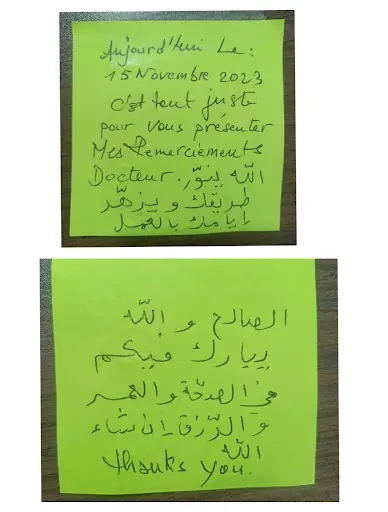 Aujourd'hui Le:
15 Novembre 2023
c'est tout juste
pour vous présenter
Mes Remerciements
Docteur. الله ينوّر
طريقك و يزهّر
أيامك بالعمل
الصالح و الله
يبارك فيكم
في الصحّة والعمر
و الرّزق إن شاء
الله
thanks you.